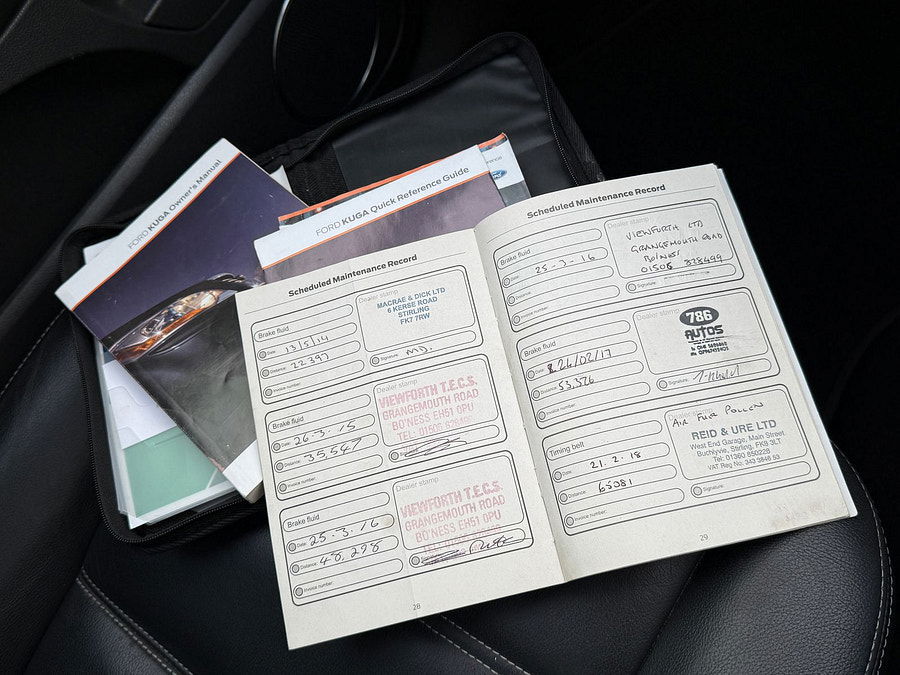 FORD KUGA Owner's Manual
FORD KUGA Quick Reference Guide
Ford
Scheduled Maintenance Record
Brake fluid
Date: 13/5/14
Distance: 22397
Invoice number:
Dealer stamp
MACRAE & DICK LTD
6 KERSE ROAD
STIRLING
FK7 7RW
Signature: MD.
Brake fluid
Date: 26-3-15
Distance: 35,547
Invoice number:
Dealer stamp
VIEWFORTH T.E.C.S.
GRANGEMOUTH ROAD
BO'NESS EH51 0PU
TEL: 01506
Brake fluid
Date: 25-3-16
Distance: 48,298
Invoice number:
Dealer stamp
VIEWFORTH T.E.C.S.
GRANGEMOUTH ROAD
BO'NESS EH51 0PU
28
Scheduled Maintenance Record
Brake fluid
Date: 25-3-16
Distance:
Invoice number:
Dealer stamp
VIEWFORTH LTD
GRANGEMOUTH ROAD
01506 828499
Signature:
Brake fluid
Date: 26/02/17
Distance: 53,326
Invoice number:
Dealer stamp
786
AUTOS
Signature:
Timing belt
Date: 21.2.18
Distance: 65081
Invoice number:
Dealer stamp
AIR FUEL POLLEN
REID & URE LTD
West End Garage, Main Street
Buchlyvie, Stirling, FK8 3LT
Tel: 01360 850228
VAT Reg No: 343 2848 53
Signature:
29